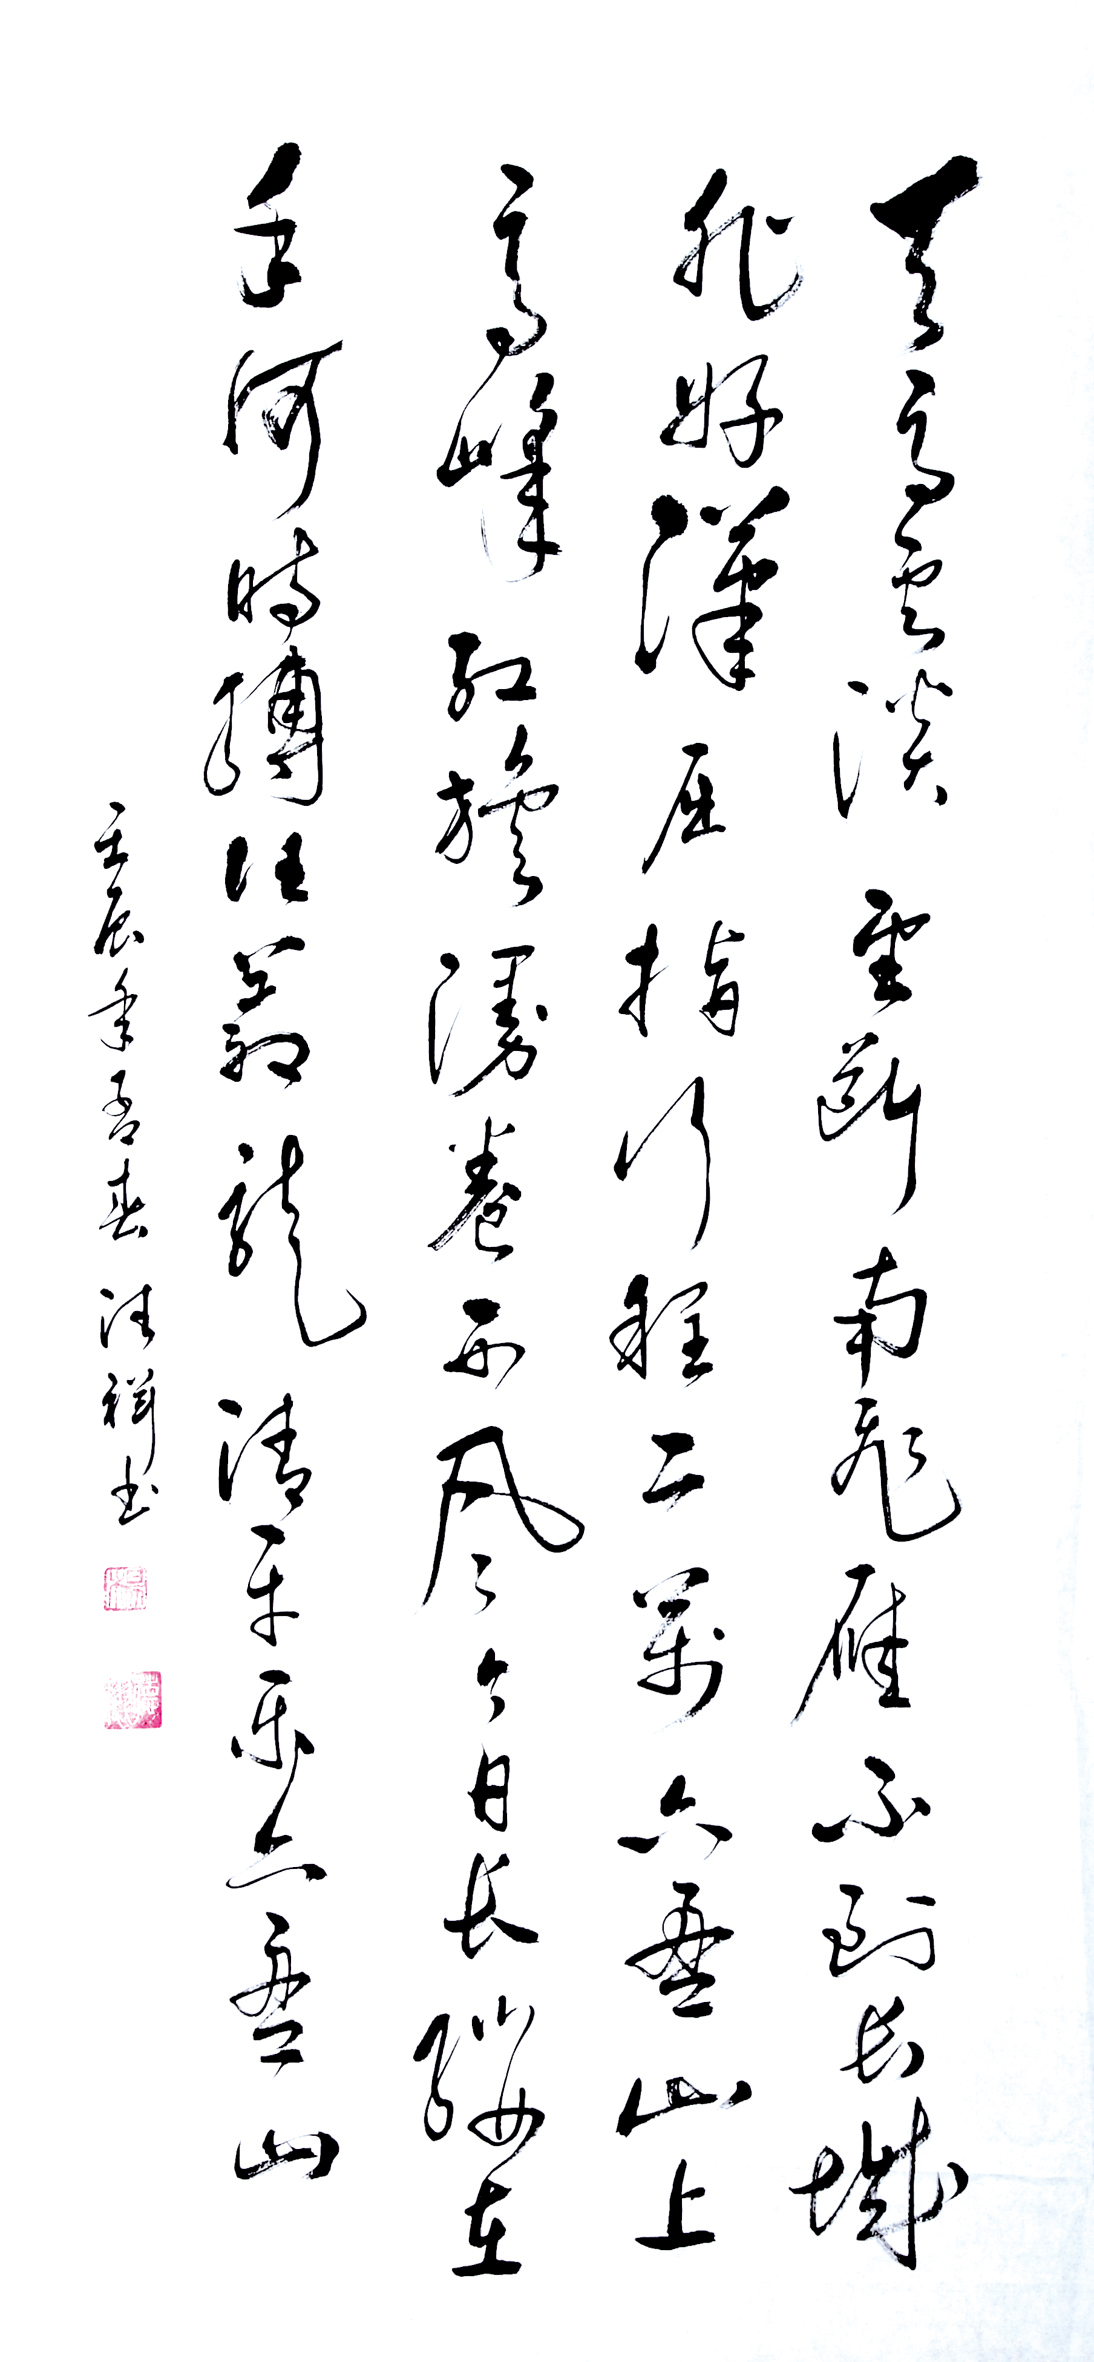 天高雲淡望断南飛雁不到长城
非好漢屈指行程二萬六盘山上
高峰红旗漫卷西风今日长缨在
手何时缚住苍龍清平乐六盘山
壬辰年春祥书